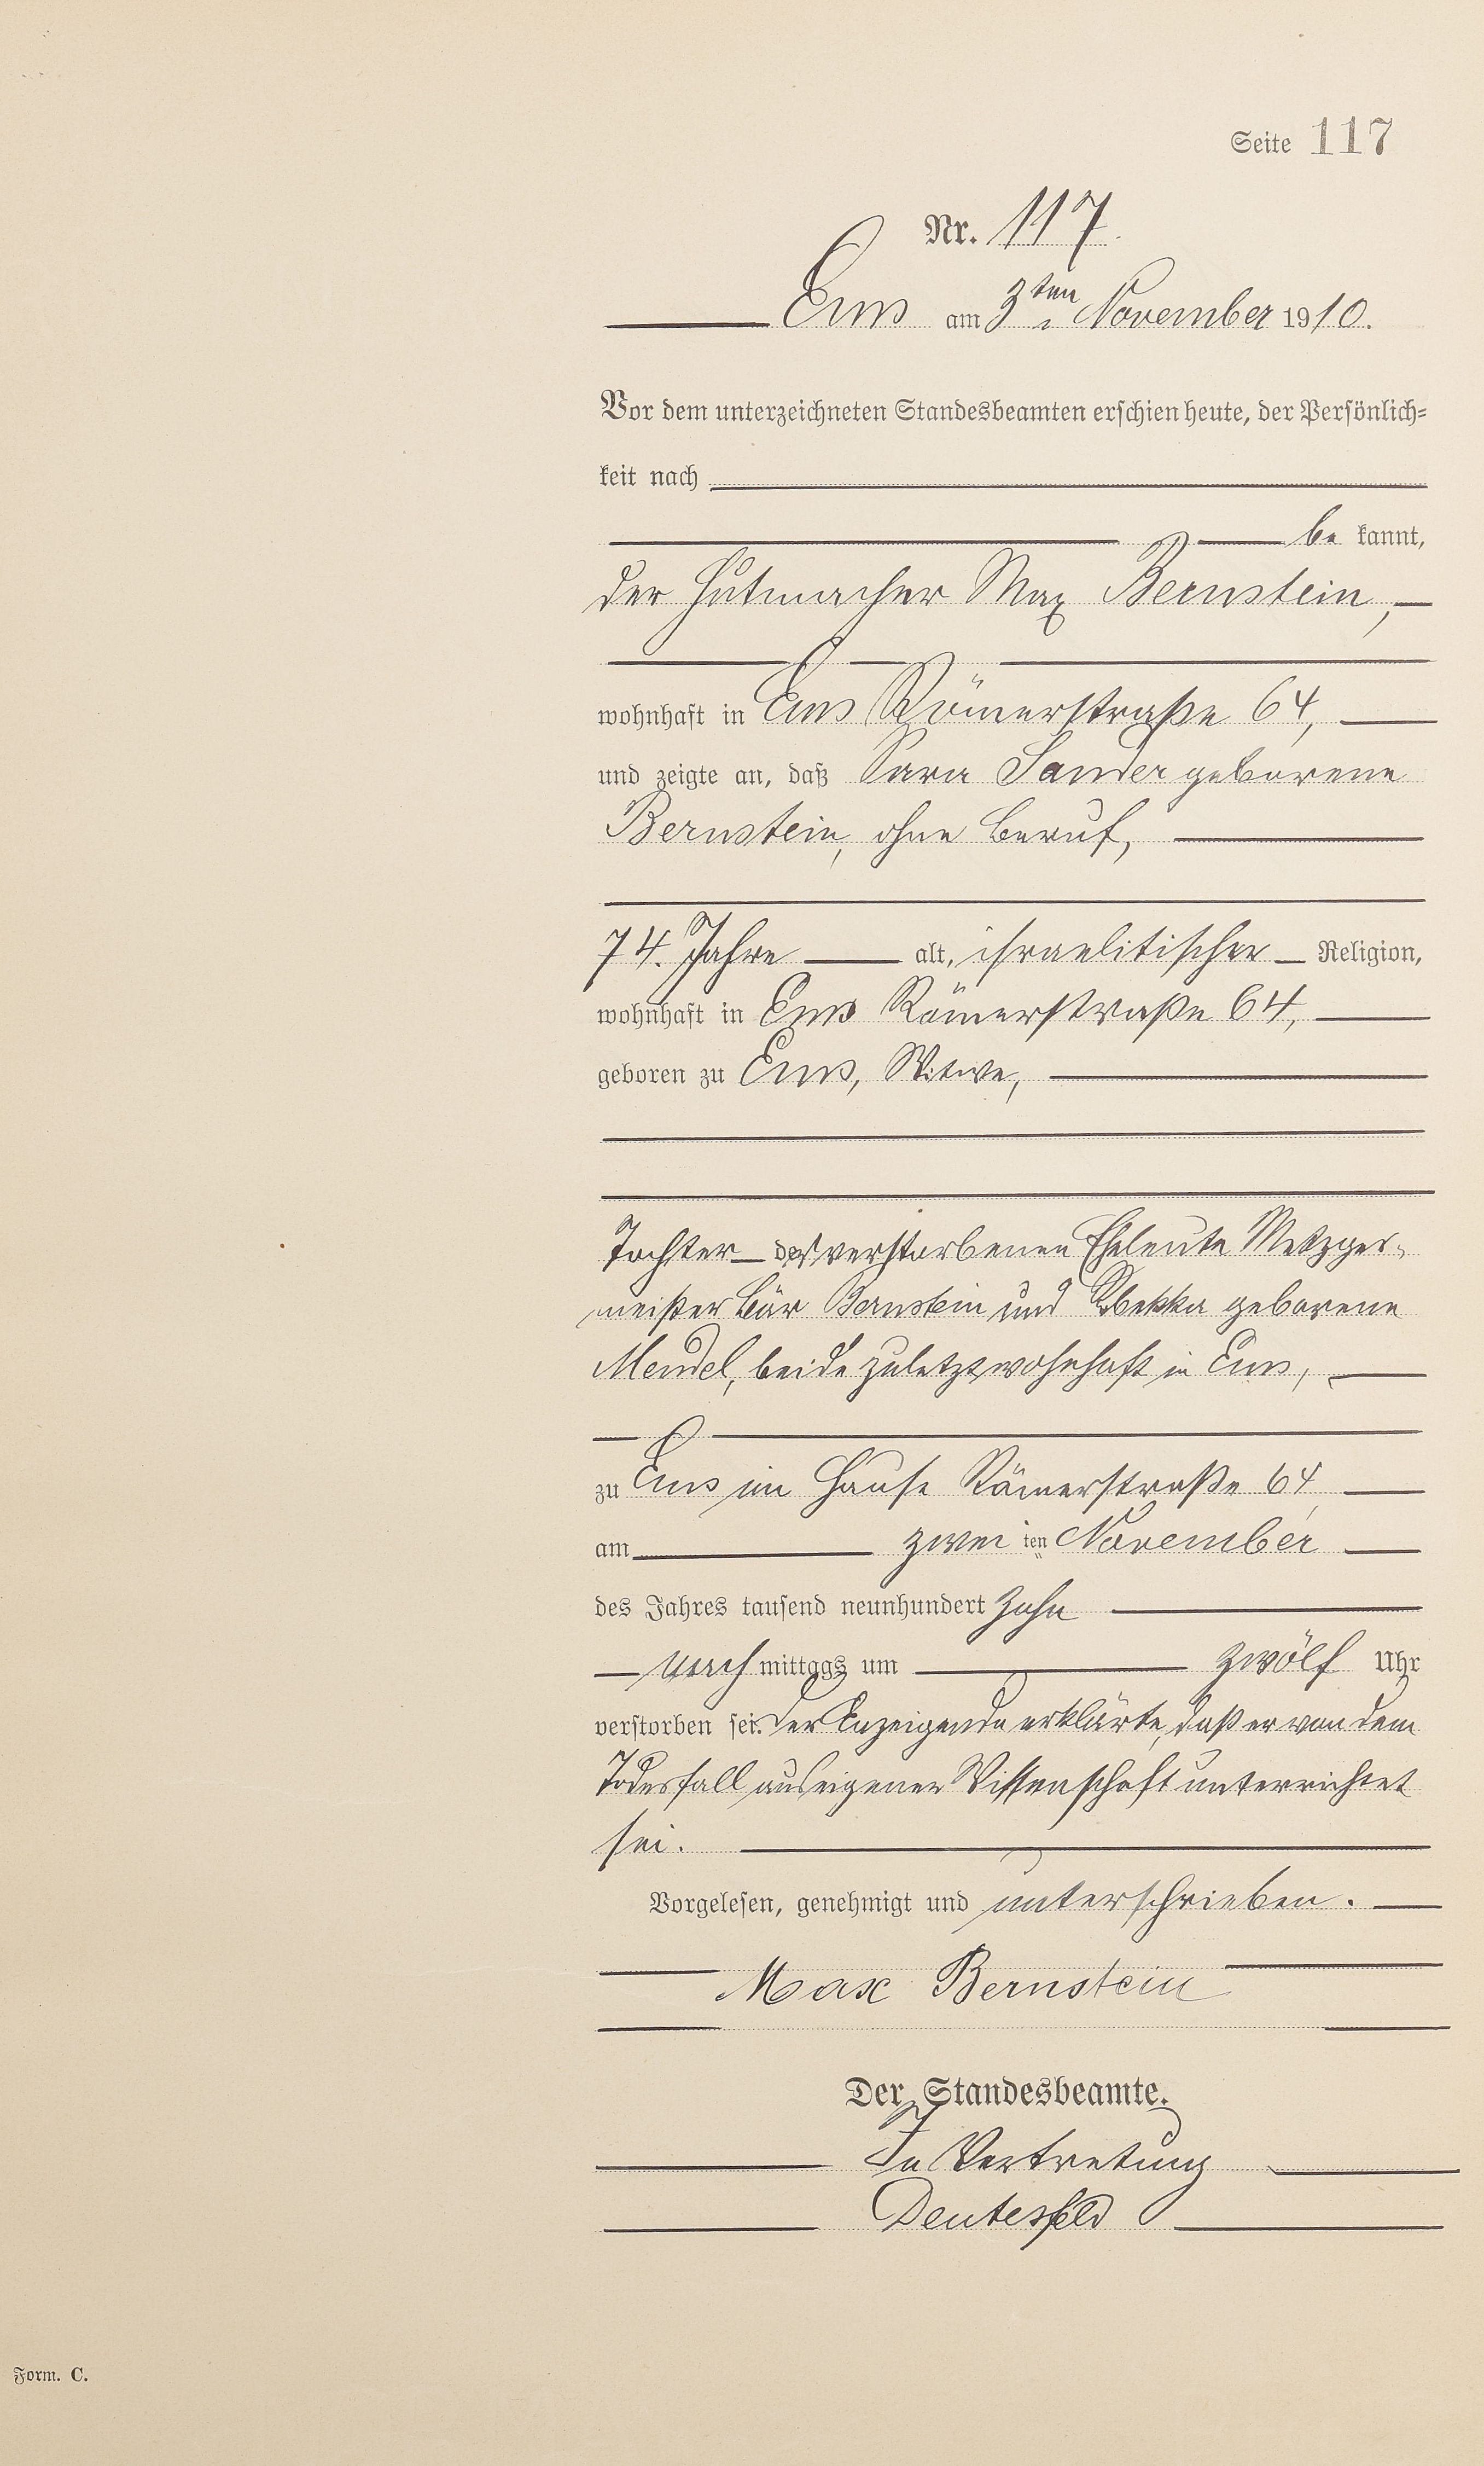 Seite 117
Nr. 117.
Ems am 3ten November 1910.
Vor dem unterzeichneten Standesbeamten erschien heute, der Persönlich-
keit nach
be kannt,
der Hutmacher Max Bernstein,
wohnhaft in Ems Römerstraße 64,
und zeigte an, daß Sara Sander geborene
Bernstein, ohne Beruf,
74. Jahre alt, israelitischer Religion,
wohnhaft in Ems Römerstraße 64,
geboren zu Ems, Witwe,
Tochter der verstorbenen Eheleute Metzger-
meister Bär Bernstein und Rebekka geborene
Mendel, beide zuletzt wohnhaft in Ems,
zu Ems im Hause Römerstraße 64
am zwei ten November
des Jahres tausend neunhundert zehn
nach mittags um zwölf Uhr
verstorben sei. Der Anzeigende erklärte, daß er von dem
Todesfall aus eigener Wissenschaft unterrichtet
sei.
Vorgelesen, genehmigt und unterschrieben.
Max Bernstein
Der Standesbeamte.
In Vertretung
Deutesfeld
Form. C.